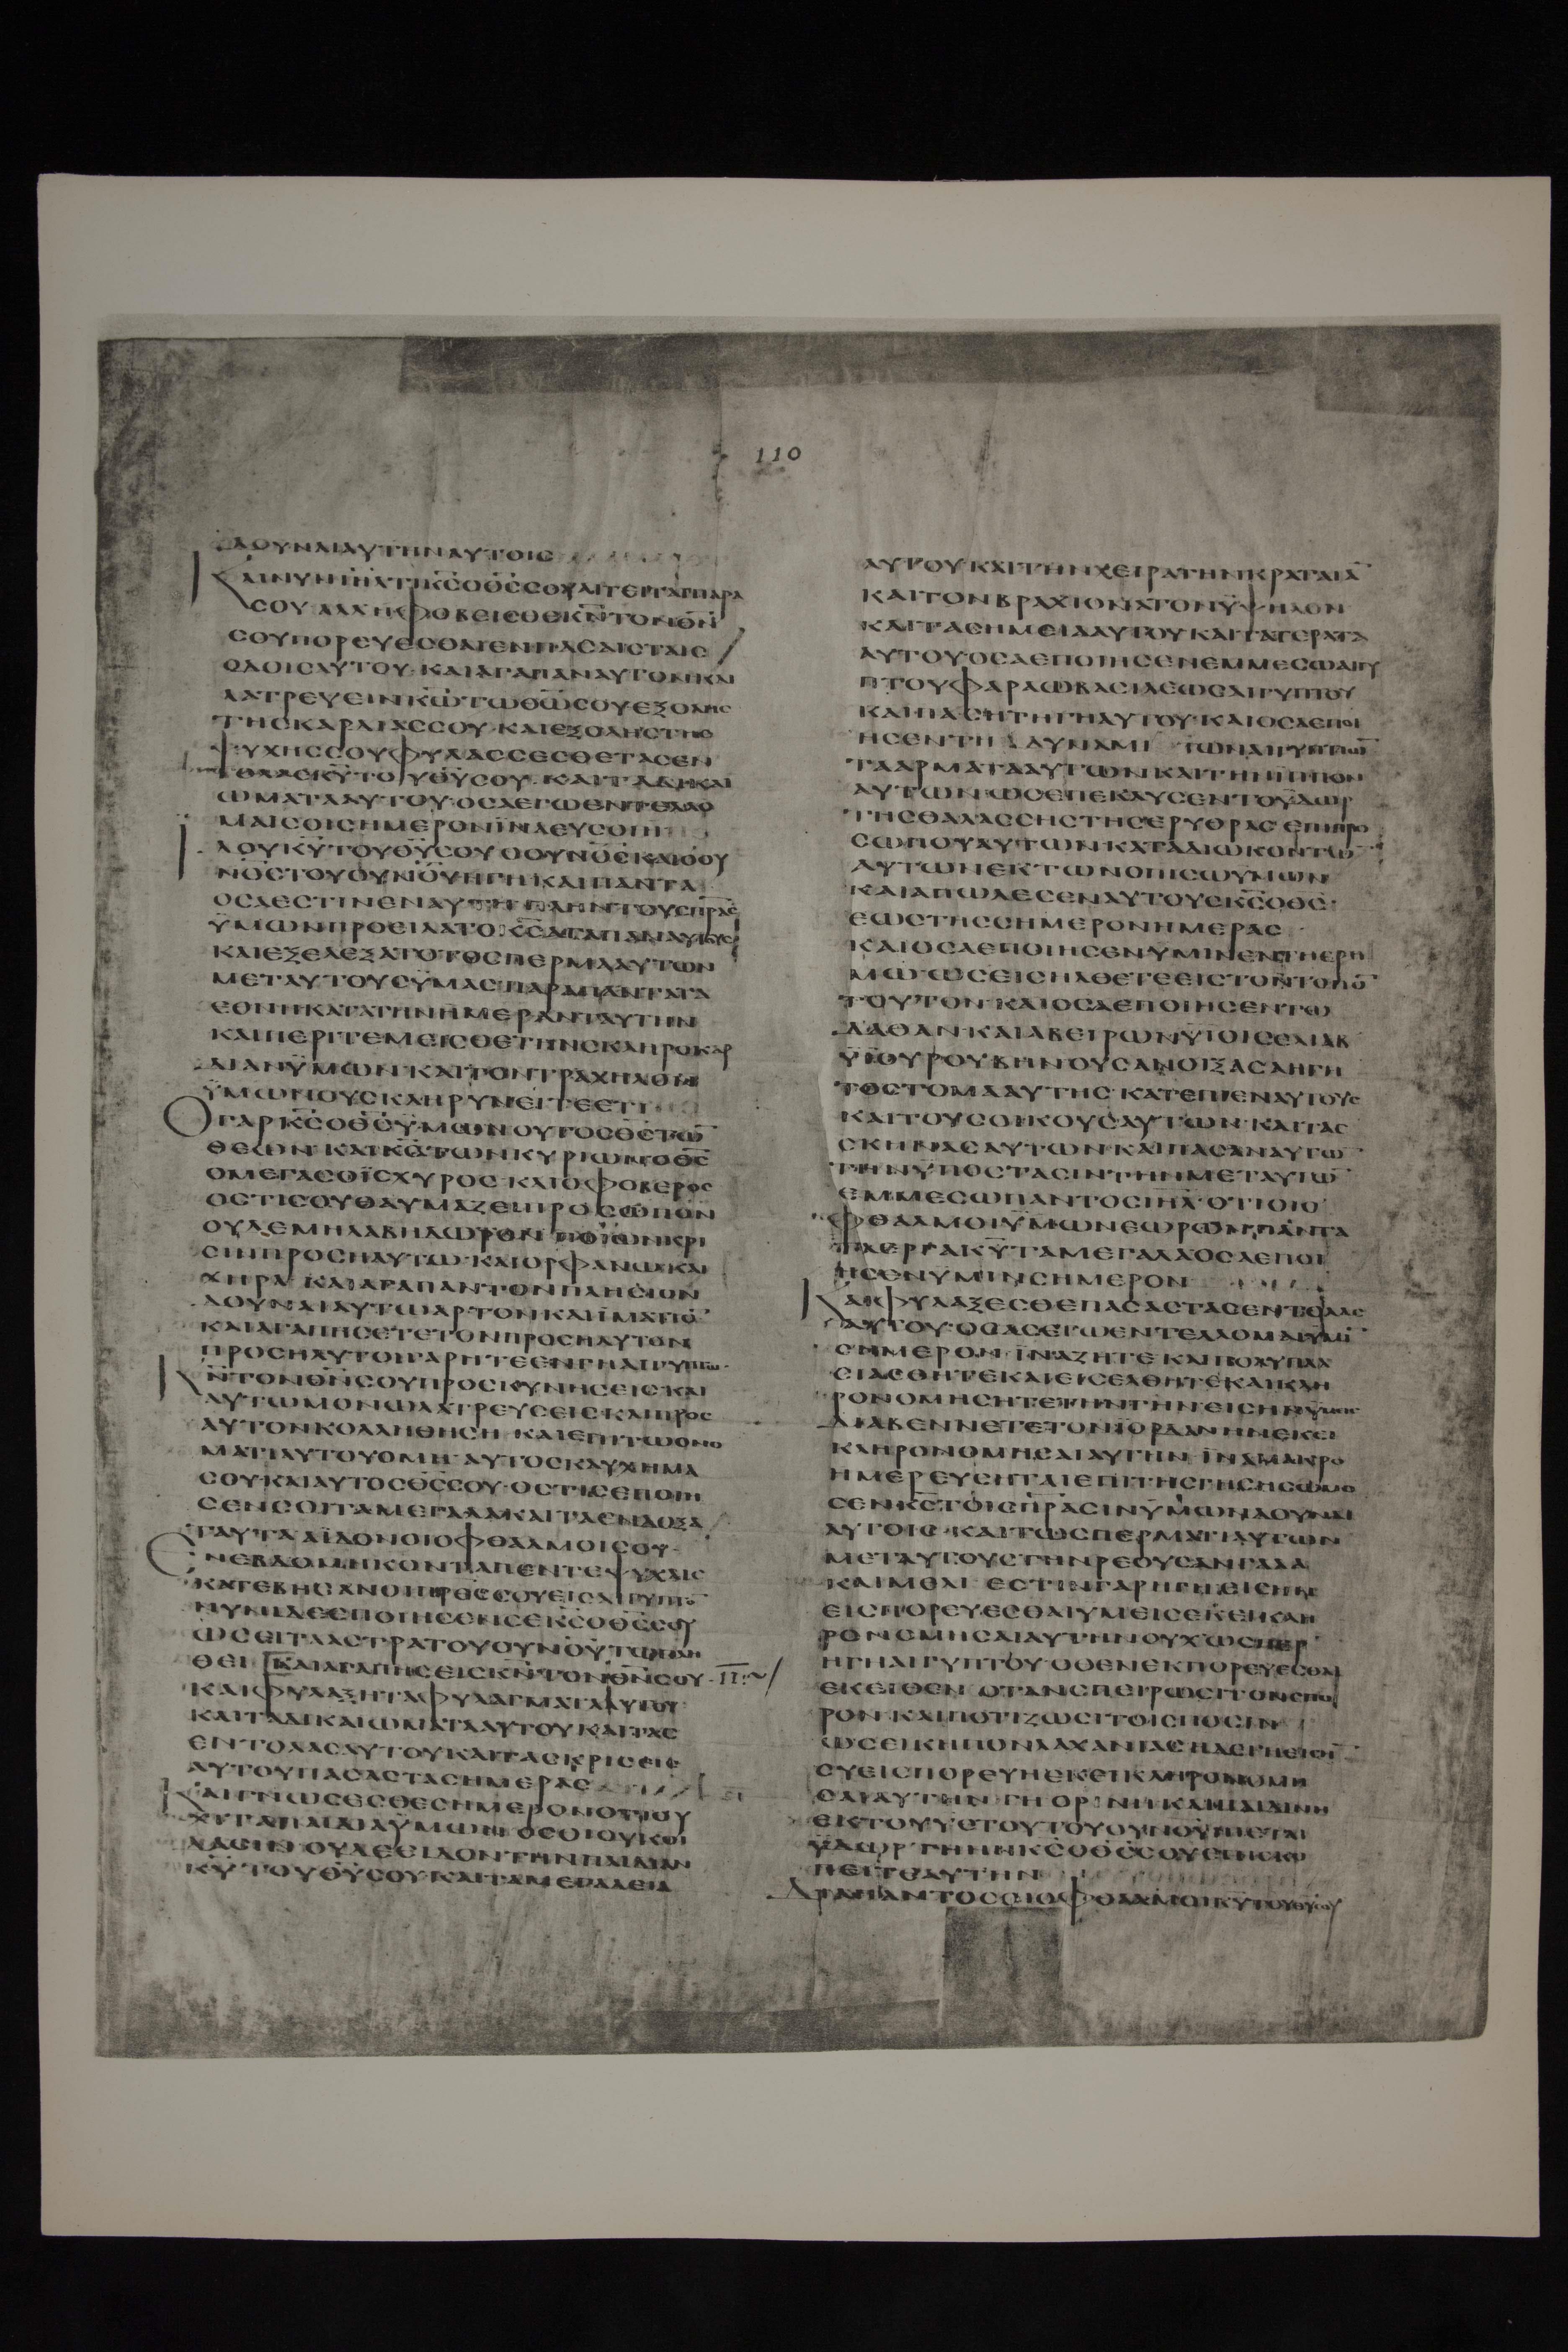 110
ΔΟΥΝΑΙΑΥΤΗΝΑΥΤΟΙΣ
ΚΑΙΝΥΝΙΗΛΤΙΚΣΟΘΣΣΟΥΑΙΤΕΙΤΑΙΠΑΡΑ
ΣΟΥΑΛΛΗΦΟΒΕΙΣΘΕΚΝΤΟΝΘΝ
ΣΟΥΠΟΡΕΥΕΣΘΑΙΕΝΠΑΣΑΙΣΤΑΙΣ
ΟΔΟΙΣΑΥΤΟΥ·ΚΑΙΑΓΑΠΑΝΑΥΤΟΝΚΑΙ
ΛΑΤΡΕΥΕΙΝΚΩΤΩΘΩΣΟΥΕΞΟΛΗΣ
ΤΗΣΚΑΡΔΙΑΣΣΟΥ·ΚΑΙΕΞΟΛΗΣΤΗΣ
ΨΥΧΗΣΣΟΥΦΥΛΑΣΣΕΣΘΕΤΑΣΕΝ
ΤΟΛΑΣΚΥΤΟΥΘΥΣΟΥ·ΚΑΙΤΑΔΙΚΑΙ
ΩΜΑΤΑΑΥΤΟΥ·ΟΣΑΕΓΩΕΝΤΕΛΛΟ
ΜΑΙΣΟΙΣΗΜΕΡΟΝΪΝΑΕΥΣΟΙΗ
ΔΟΥΚΥΤΟΥΘΥΣΟΥΟΟΥΝΟΣΚΑΙΟΟΥ
ΝΟΣΤΟΥΟΥΝΟΥΗΓΗΚΑΙΠΑΝΤΑ
ΟΣΑΕΣΤΙΝΕΝΑΥΤΗΠΛΗΝΤΟΥΣΠΡΑΣ
ΫΜΩΝΠΡΟΕΙΛΑΤΟΚΣΑΓΑΠΑΝΑΥΤΟΥΣ
ΚΑΙΕΞΕΛΕΞΑΤΟΤΟΣΠΕΡΜΑΑΥΤΩΝ
ΜΕΤΑΥΤΟΥΣΫΜΑΣΠΑΡΑΠΑΝΤΑΤΑ
ΕΘΝΗΚΑΤΑΤΗΝΗΜΕΡΑΝΤΑΥΤΗΝ
ΚΑΙΠΕΡΙΤΕΜΕΙΣΘΕΤΗΝΣΚΛΗΡΟΚΑΡ
ΔΙΑΝΫΜΩΝ·ΚΑΙΤΟΝΤΡΑΧΗΛΟΝ
ΫΜΩΝΟΥΣΚΛΗΡΥΝΕΙΤΕΕΤΙ
ΟΓΑΡΚΣΟΘΣΫΜΩΝΟΥΤΟΣΘΣΤΩ
ΘΕΩΝ·ΚΑΙΚΣΤΩΝΚΥΡΙΩΝΟΘΣ
ΟΜΕΓΑΣΟΪΣΧΥΡΟΣ·ΚΑΙΟΦΟΒΕΡΟΣ
ΟΣΤΙΣΟΥΘΑΥΜΑΖΕΙΠΡΟΣΩΠΟΝ
ΟΥΔΕΜΗΛΑΒΗΔΩΡΟΝΠΟΙΩΝΚΡΙ
ΣΙΝΠΡΟΣΗΛΥΤΩ·ΚΑΙΟΡΦΑΝΩΚΑΙ
ΧΗΡΑ·ΚΑΙΑΓΑΠΑΝΤΟΝΠΛΗΣΙΟΝ
ΔΟΥΝΑΙΑΥΤΩΑΡΤΟΝΚΑΙΪΜΑΤΙΟ
ΚΑΙΑΓΑΠΗΣΕΤΕΤΟΝΠΡΟΣΗΛΥΤΟΝ
ΠΡΟΣΗΛΥΤΟΙΓΑΡΗΤΕΕΝΓΗΑΙΓΥΠΤΩ·
ΚΝΤΟΝΘΝΣΟΥΠΡΟΣΚΥΝΗΣΕΙΣΚΑΙ
ΑΥΤΩΜΟΝΩΛΑΤΡΕΥΣΕΙΣΚΑΙΠΡΟΣ
ΑΥΤΟΝΚΟΛΛΗΘΗΣΗ·ΚΑΙΕΠΙΤΩΟΝΟ
ΜΑΤΙΑΥΤΟΥΟΜΗ·ΑΥΤΟΣΚΑΥΧΗΜΑ
ΣΟΥ·ΚΑΙΑΥΤΟΣΘΣΣΟΥ·ΟΣΤΙΣΕΠΟΙΗ
ΣΕΝΣΟΙΤΑΜΕΓΑΛΑΚΑΙΤΑΕΝΔΟΞΑ
ΤΑΥΤΑΑΪΔΟΝΟΙΟΦΘΑΛΜΟΙΣΟΥ·
ΕΝΕΒΔΟΜΗΚΟΝΤΑΠΕΝΤΕΨΥΧΑΙΣ
ΚΑΤΕΒΗΣΑΝΟΙΠΡΕΣΣΟΥΕΙΣΑΙΓΥΠΤΟ
ΝΥΝΙΔΕΕΠΟΙΗΣΕΝΣΕΚΣΟΘΣΣΟΥ
ΩΣΕΙΤΑΑΣΤΡΑΤΟΥΟΥΝΟΥΤΩΠΛΗ
ΘΕΙ ΚΑΙΑΓΑΠΗΣΕΙΣΚΝΤΟΝΘΝΣΟΥ
ΚΑΙΦΥΛΑΞΗΤΑΦΥΛΑΓΜΑΤΑΑΥΤΟΥ
ΚΑΙΤΑΔΙΚΑΙΩΜΑΤΑΑΥΤΟΥΚΑΙΤΑΣ
ΕΝΤΟΛΑΣΑΥΤΟΥΚΑΙΤΑΣΚΡΙΣΕΙΣ
ΑΥΤΟΥΠΑΣΑΣΤΑΣΗΜΕΡΑΣ
ΚΑΙΓΝΩΣΕΣΘΕΣΗΜΕΡΟΝΟΤΙΟΥ
ΧΙΤΑΠΑΙΔΙΑΫΜΩΝΟΣΟΙΟΥΚΟΙ
ΔΑΣΙΝΟΥΔΕΕΙΔΟΝΤΗΝΠΑΙΔΙΑΝ
ΚΥΤΟΥΘΥΣΟΥΚΑΙΤΑΜΕΓΑΛΕΙΑ
ΑΥΤΟΥΚΑΙΤΗΝΧΕΙΡΑΤΗΝΚΡΑΤΑΙΑ
ΚΑΙΤΟΝΒΡΑΧΙΟΝΑΤΟΝΫΨΗΛΟΝ
ΚΑΙΤΑΣΗΜΕΙΑΑΥΤΟΥΚΑΙΤΑΤΕΡΑΤΑ
ΑΥΤΟΥΟΣΑΕΠΟΙΗΣΕΝΕΜΜΕΣΩΑΙΓΥ
ΠΤΟΥΦΑΡΑΩΒΑΣΙΛΕΩΣΑΙΓΥΠΤΟΥ
ΚΑΙΠΑΣΗΤΗΓΗΑΥΤΟΥ·ΚΑΙΟΣΑΕΠΟΙ
ΗΣΕΝΤΗΔΥΝΑΜΙΤΩΝΑΙΓΥΠΤΙΩ
ΤΑΑΡΜΑΤΑΑΥΤΩΝΚΑΙΤΗΝΙΠΠΟΝ
ΑΥΤΩΝ·ΩΣΕΠΕΚΛΥΣΕΝΤΟΫΔΩΡ
ΤΗΣΘΑΛΑΣΣΗΣΤΗΣΕΡΥΘΡΑΣΕΠΙΠΡΟ
ΣΩΠΟΥΑΥΤΩΝΚΑΤΑΔΙΩΚΟΝΤΩ
ΑΥΤΩΝΕΚΤΩΝΟΠΙΣΩΫΜΩΝ
ΚΑΙΑΠΩΛΕΣΕΝΑΥΤΟΥΣΚΣΟΘΣ·
ΕΩΣΤΗΣΣΗΜΕΡΟΝΗΜΕΡΑΣ
ΚΑΙΟΣΑΕΠΟΙΗΣΕΝΫΜΙΝΕΝΤΗΕΡΗ
ΜΩΩΣΕΙΣΗΛΘΕΤΕΕΙΣΤΟΝΤΟΠΟ
ΤΟΥΤΟΝ·ΚΑΙΟΣΑΕΠΟΙΗΣΕΝΤΩ
ΔΑΘΑΝ·ΚΑΙΑΒΕΙΡΩΝΫΪΟΙΣΕΛΙΑΒ
ΫΪΟΥΡΟΥΒΗΝΟΥΣΑΝΟΙΞΑΣΑΗΓΗ
ΤΟΣΤΟΜΑΑΥΤΗΣ·ΚΑΤΕΠΙΕΝΑΥΤΟΥΣ
ΚΑΙΤΟΥΣΟΙΚΟΥΣΑΥΤΩΝ·ΚΑΙΤΑΣ
ΣΚΗΝΑΣΑΥΤΩΝΚΑΙΠΑΣΑΝΑΥΤΩ
ΤΗΝΫΠΟΣΤΑΣΙΝΤΗΝΜΕΤΑΥΤΩ
ΕΜΜΕΣΩΠΑΝΤΟΣΙΗΛ·ΟΤΙΟΙΟ
ΦΘΑΛΜΟΙΫΜΩΝΕΩΡΩΝΠΑΝΤΑ
ΤΑΕΡΓΑΚΥΤΑΜΕΓΑΛΑΟΣΑΕΠΟΙ
ΗΣΕΝΫΜΙΝΣΗΜΕΡΟΝ
ΚΑΙΦΥΛΑΞΕΣΘΕΠΑΣΑΣΤΑΣΕΝΤΟΛΑΣ
ΑΥΤΟΥ·ΟΣΑΣΕΓΩΕΝΤΕΛΛΟΜΑΙΫΜΙ
ΣΗΜΕΡΟΝ·ΪΝΑΖΗΤΕΚΑΙΠΟΛΥΠΛΑ
ΣΙΑΣΘΗΤΕΚΑΙΕΙΣΕΛΘΗΤΕΚΑΙΚΛΗ
ΡΟΝΟΜΗΣΗΤΕΤΗΝΓΗΝΕΙΣΗΝΫΜΕΙΣ
ΔΙΑΒΕΝΝΕΤΕΤΟΝΪΟΡΔΑΝΗΝΕΚΕΙ
ΚΛΗΡΟΝΟΜΗΣΑΙΑΥΤΗΝ·ΪΝΑΜΑΚΡΟ
ΗΜΕΡΕΥΣΗΤΑΙΕΠΙΤΗΣΓΗΣΗΣΩΜΟ
ΣΕΝΚΣΤΟΙΣΠΡΑΣΙΝΫΜΩΝΔΟΥΝΑΙ
ΑΥΤΟΙΣ·ΚΑΙΤΩΣΠΕΡΜΑΤΙΑΥΤΩΝ
ΜΕΤΑΥΤΟΥΣΓΗΝΡΕΟΥΣΑΝΓΑΛΑ
ΚΑΙΜΕΛΙ ΕΣΤΙΝΓΑΡΗΓΗΕΙΣΗΝ
ΕΙΣΠΟΡΕΥΕΣΘΑΙΥΜΕΙΣΕΚΕΙΚΛΗ
ΡΟΝΟΜΗΣΑΙΑΥΤΗΝΟΥΧΩΣΠΕΡ
ΗΓΗΑΙΓΥΠΤΟΥ·ΟΘΕΝΕΚΠΟΡΕΥΕΣΘΑΙ
ΕΚΕΙΘΕΝ ΟΤΑΝΣΠΕΙΡΩΣΙΤΟΝΣΠΟ
ΡΟΝ·ΚΑΙΠΟΤΙΖΩΣΙΤΟΙΣΠΟΣΙΝ
ΩΣΕΙΚΗΠΟΝΛΑΧΑΝΙΑΣΗΔΕΓΗΕΙΣΗ
ΣΥΕΙΣΠΟΡΕΥΗΕΚΕΙΚΛΗΡΟΝΟΜΗ
ΣΑΙΑΥΤΗΝΓΗΟΡΙΝΗΚΑΙΠΑΙΔΙΝΗ
ΕΚΤΟΥΫΕΤΟΥΤΟΥΟΥΝΟΥΠΙΕΤΑΙ
ΫΔΩΡΓΗΗΝΚΣΟΘΣΣΟΥΕΠΙΣΚΟ
ΠΕΙΤΕΑΥΤΗΝ
ΔΙΑΠΑΝΤΟΣΟΙΟΦΘΑΛΜΟΙΚΥΤΟΥΘΥΣΟΥ